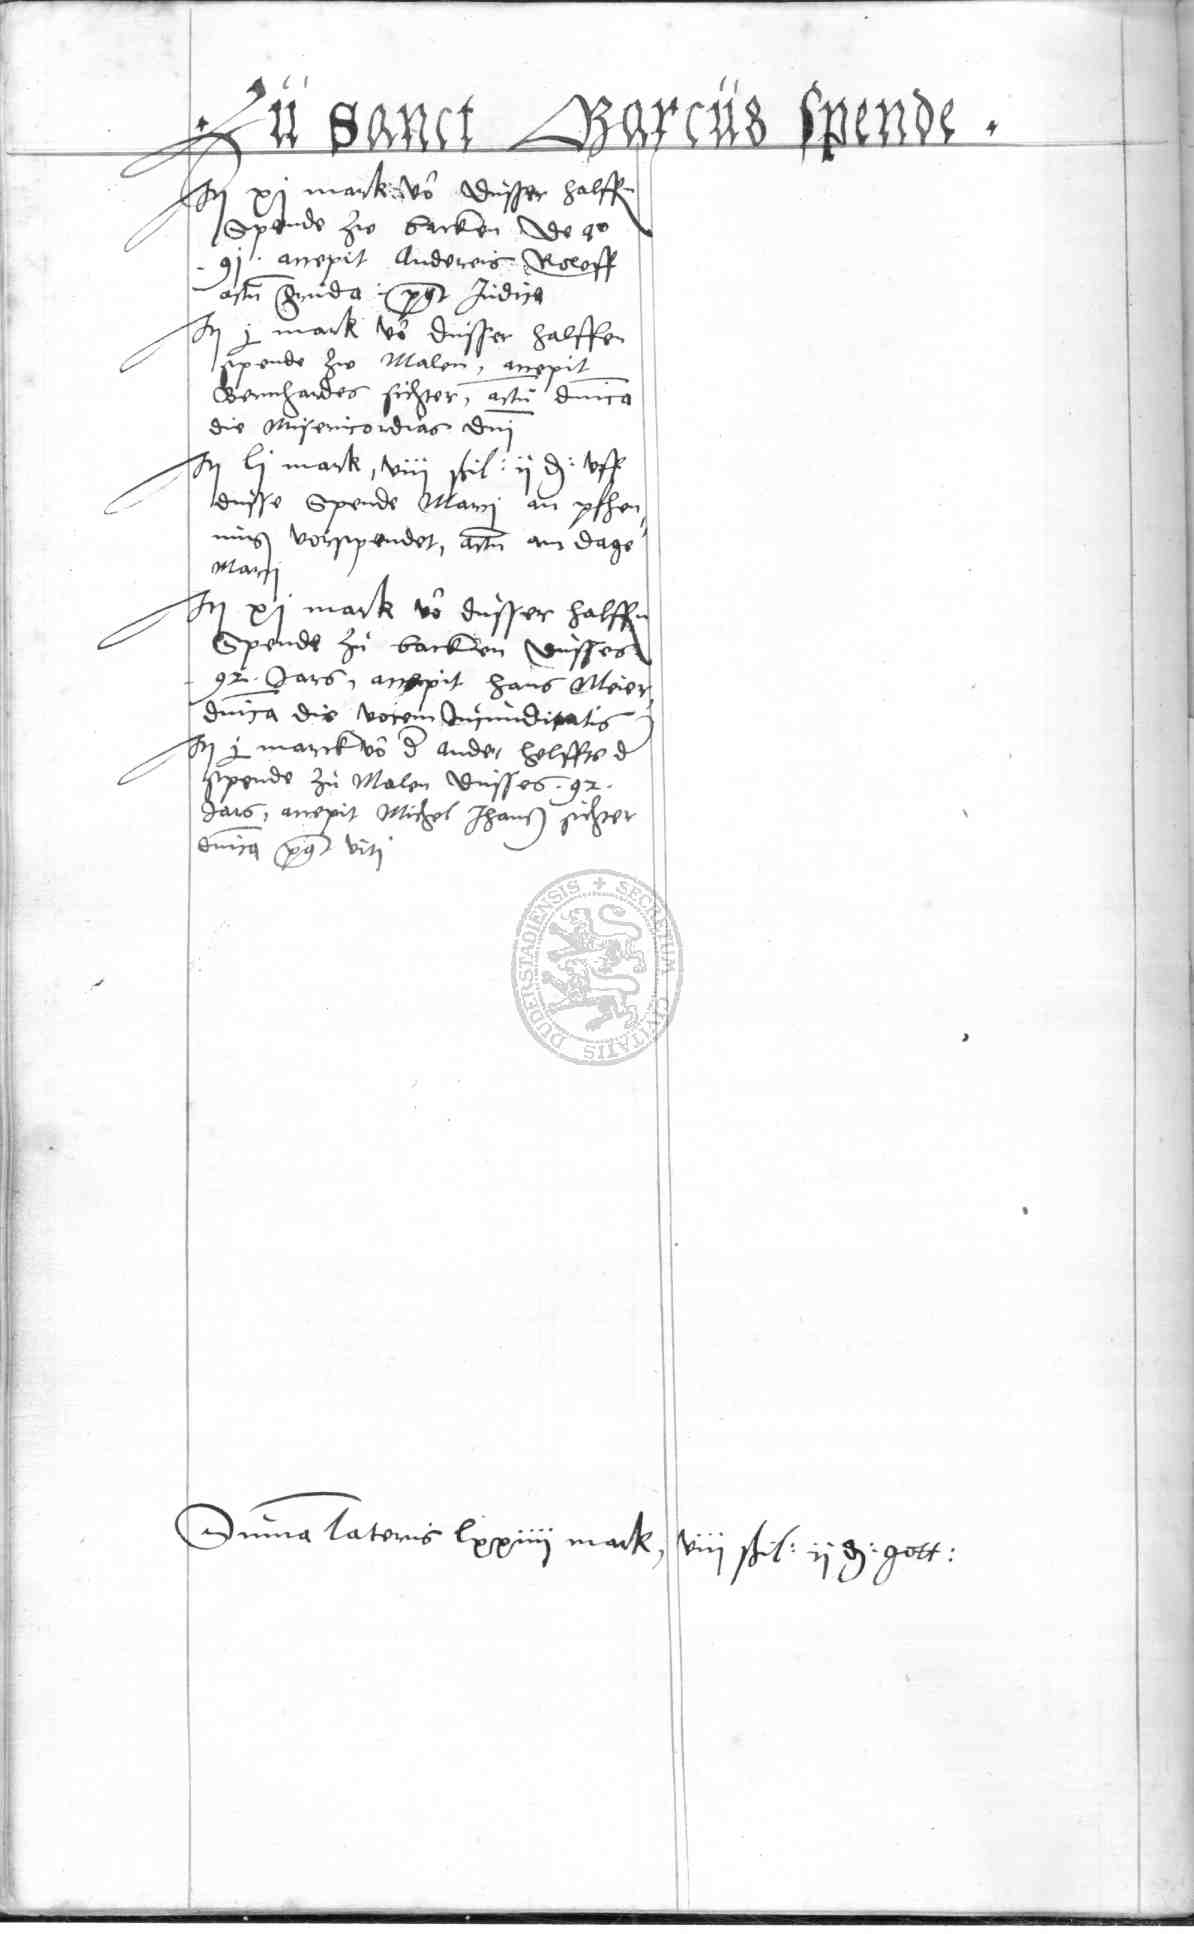 Zü sanct Marcüs spende
It xj mark vō düsser halffn
Spende zw backen de ao
91 accepit Andereis Roloff
actū secūda post Judica
It j mark vō düsser halffen
spende zw Malen, accepit
Bernhardes sichter, actū dnica
die Misericordias dnj
It lj mark, viij ßil: ij d: vff
düsse Spende Marcj an pfhen
ning vorspendet, actū am dage
Marcj
It xj mark vō düsser halffn
Spende zü backen düsses
92 Jars, accepit hans Meier
dnica die vocem Jucünditatis
It j marck vō d ander helffte d
spende zü Malen düsses 92
Jars, accepit Michel Jhans sichter
dnica post vitj
DUDERSTADIENSIS + SECRETUM CIVITATIS
Suma lateris lxxiiij mark, viij ßil: ij d: gott: